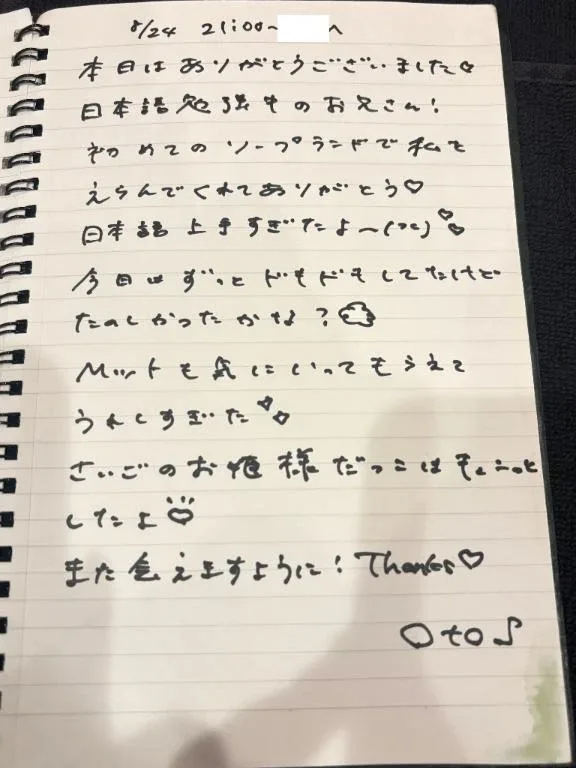 8/24 21:00~ へ
本日はありがとうございました♡
日本語勉強中のお兄さん!
初めてのソープランドで私を
えらんでくれてありがとう♡
日本語上手すぎたよ〜
今日はずっとドキドキしてたけど
たのしかったかな?
Mットも気にいってもらえて
うれしすぎた
さいごのお姫様だっこはきゅっと
したよ♡
また会えますように! Thanks♡
Oto♪